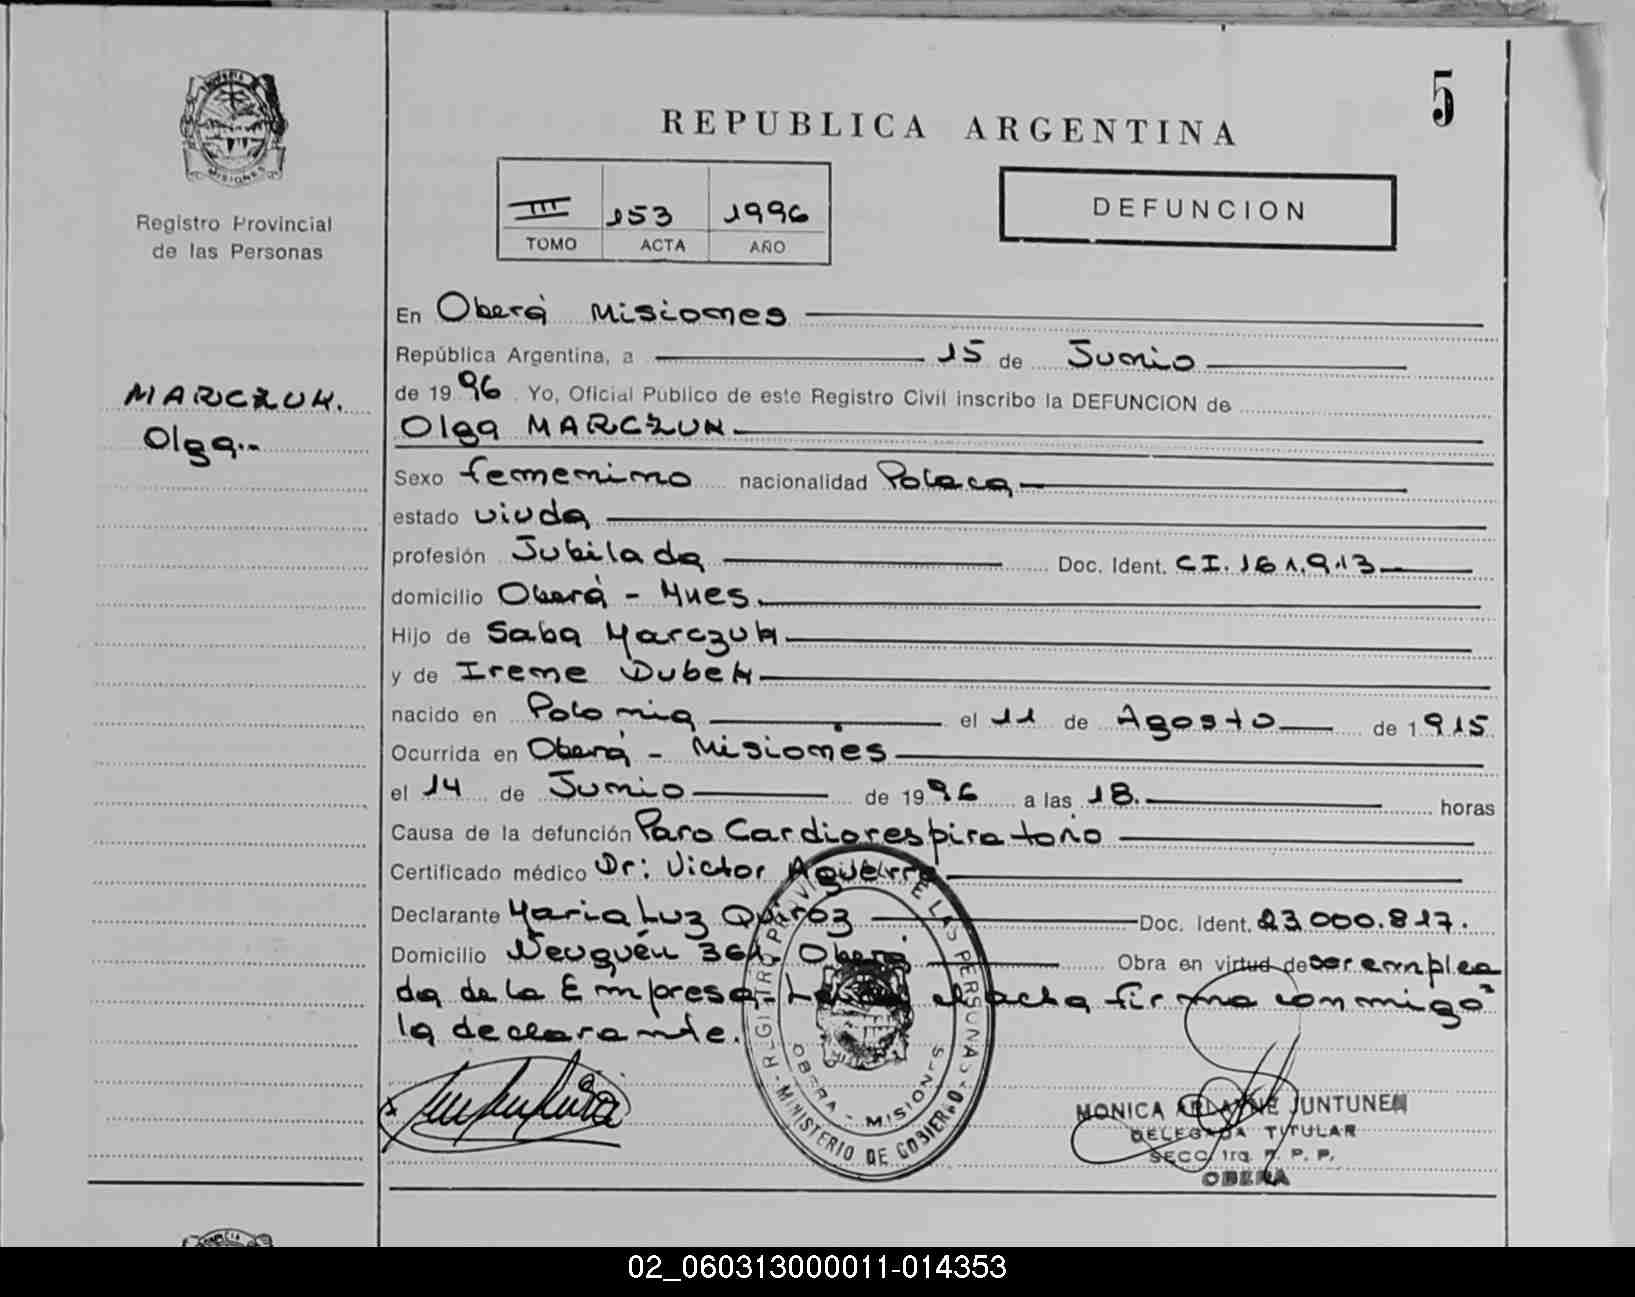 5
REPUBLICA ARGENTINA
MISIONES
Registro Provincial
de las Personas
III 153 1996
TOMO ACTA AÑO
DEFUNCION
MARCZUK.
Olga.-
En Oberá Misiones
República Argentina, a 15 de Junio
de 1996. Yo, Oficial Público de este Registro Civil inscribo la DEFUNCION de
Olga MARCZUK
Sexo femenino nacionalidad Polaca
estado viuda
profesión Jubilada Doc. Ident. CI. 161.913
domicilio Oberá - Mnes.
Hijo de Saba Marczuk
y de Irene Dubek
nacido en Polonia el 11 de Agosto de 1915
Ocurrida en Oberá - Misiones
el 14 de Junio de 1996 a las 18. horas
Causa de la defunción Paro Cardiorespiratorio
Certificado médico Dr: Victor Aguirre
Declarante Maria Luz Quiroz Doc. Ident. 23.000.817.
Domicilio Neuquén 361. Oberá Obra en virtud de ser emplea
da de la Empresa. el acta firma conmigo
la declarante.
REGISTRO PROVINCIAL DE LAS PERSONAS
OBERA - MISIONES
MINISTERIO DE GOBIERNO
MONICA ARLAINE JUNTUNEN
DELEGADA TITULAR
SECC. 1ra. R. P. P.
OBERA
02_060313000011-014353